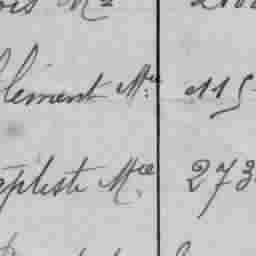 ois Me 210
lément Mce 115
aptiste Mce 273